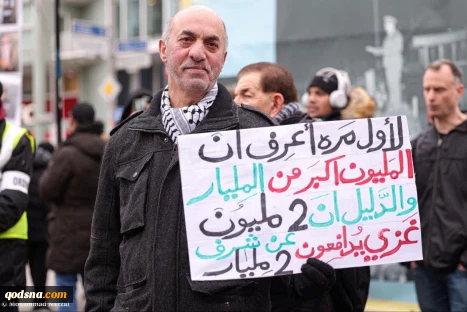 لأول مرة أعرف ان
المليون اكبر من المليار
والدليل ان 2 مليون
غزي يدافعون عن شرف
2 مليار
ORDN
qodsna.com